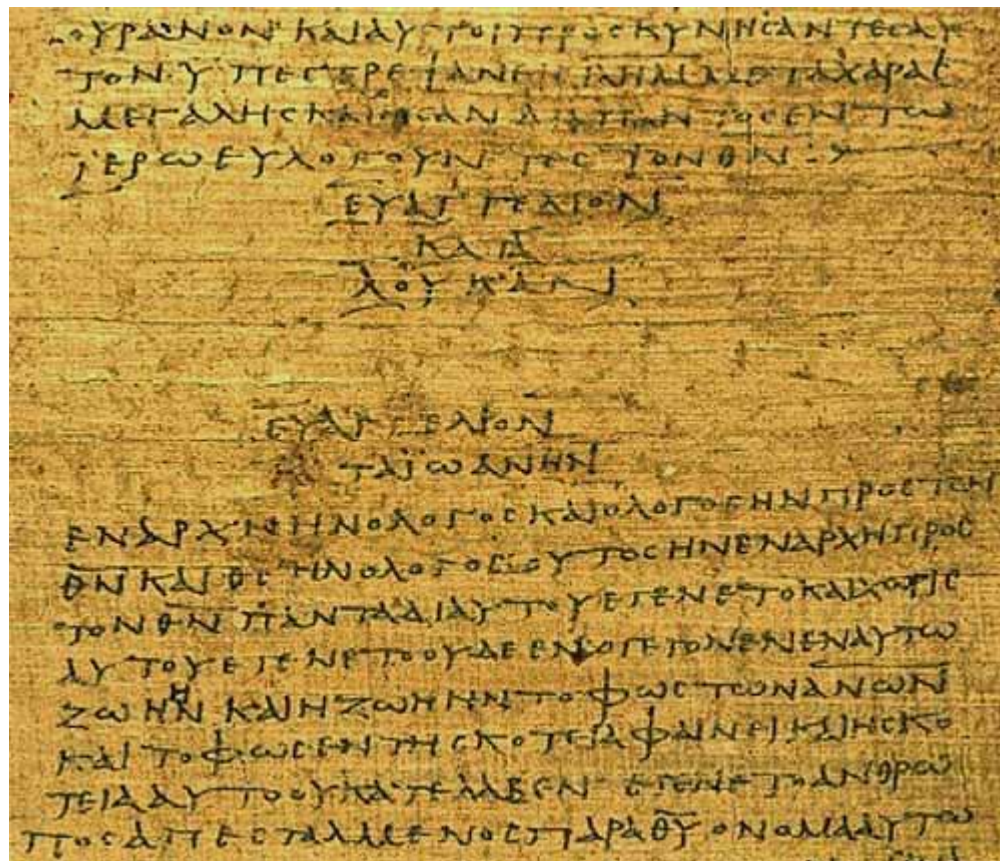 ΟΥΡΑΝΟΝ ΚΑΙ ΑΥΤΟΙ ΠΡΟϹΚΥΝΗϹΑΝΤΕϹ ΑΥ
ΤΟΝ ΥΠΕϹΤΡΕΨΑΝ ΜΕΤΑ ΧΑΡΑϹ
ΜΕΓΑΛΗϹ ΚΑΙ ΗϹΑΝ ΔΙΑ ΠΑΝΤΟϹ ΕΝ ΤΩ
ΪΕΡΩ ΕΥΛΟΓΟΥΝΤΕϹ ΤΟΝ Θ̅Ν̅
ΕΥΑΓΓΕΛΙΟΝ
ΚΑΤΑ
ΛΟΥΚΑΝ
ΕΥΑΓΓΕΛΙΟΝ
ΤΑ ΪΩΑΝΗΝ
ΕΝ ΑΡΧΗ ΗΝ Ο ΛΟΓΟϹ ΚΑΙ Ο ΛΟΓΟϹ ΗΝ ΠΡΟϹ ΤΟΝ
Θ̅Ν̅ ΚΑΙ Θ̅Ϲ̅ ΗΝ Ο ΛΟΓΟϹ ΟΥΤΟϹ ΗΝ ΕΝ ΑΡΧΗ ΠΡΟϹ
ΤΟΝ Θ̅Ν̅ ΠΑΝΤΑ ΔΙ ΑΥΤΟΥ ΕΓΕΝΕΤΟ ΚΑΙ ΧΩΡΙϹ
ΑΥΤΟΥ ΕΓΕΝΕΤΟ ΟΥΔΕ ΕΝ Ο ΓΕΓΟΝΕΝ ΕΝ ΑΥΤΩ
ΖΩΗ ΗΝ ΚΑΙ Η ΖΩΗ ΗΝ ΤΟ ΦΩϹ ΤΩΝ Α̅Ν̅Ω̅Ν̅
ΚΑΙ ΤΟ ΦΩϹ ΕΝ ΤΗ ϹΚΟΤΕΙΑ ΦΑΙΝΕΙ ΚΑΙ Η ϹΚΟ
ΤΕΙΑ ΑΥΤΟ ΟΥ ΚΑΤΕΛΑΒΕΝ ΕΓΕΝΕΤΟ ΑΝΘΡΩ
ΠΟϹ ΑΠΕϹΤΑΛΜΕΝΟϹ ΠΑΡΑ Θ̅Υ̅ ΟΝΟΜΑ ΑΥΤΩ